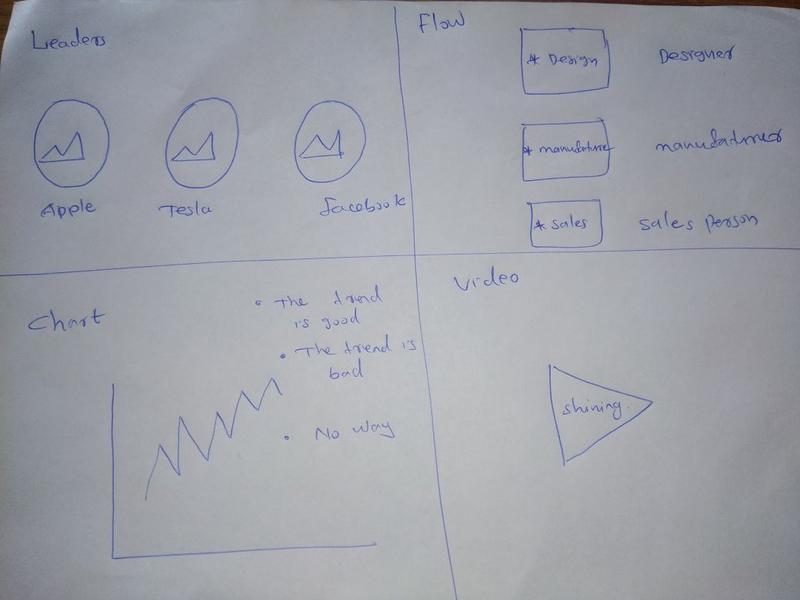 Leaders
Apple
Tesla
facebook
Flow
* Design
Designer
* manufature
manufaturer
* sales
sales person
Chart
• The trend
is good
• The trend is
bad
• No way
Video
shining.